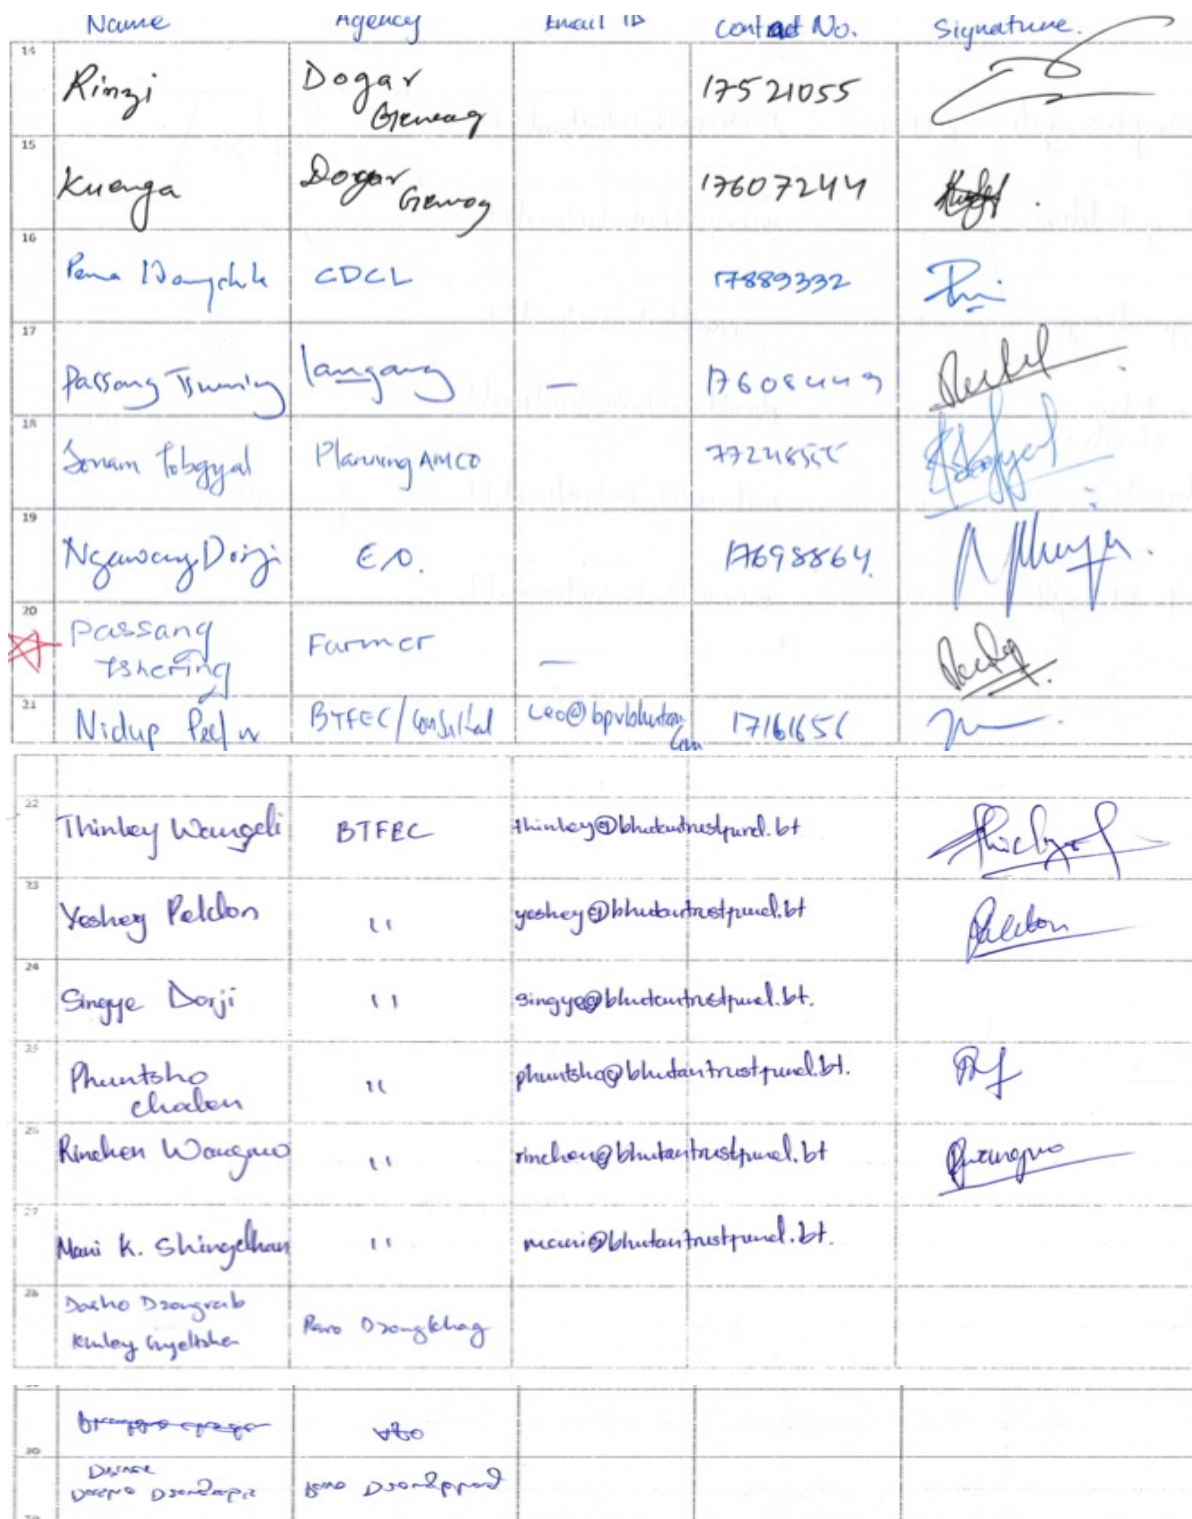 Name Agency Email ID Contact No. Signature.
14 Rinzi Dogar Gewog 17521055
15 Kuenga Dogar Gewog 17607244
16 Pema Wangchuk CDCL 17889332
17 Passang Tshering langang — 17608449
18 Sonam Tobgyal Planning AMCO
19 Ngawang Dorji E.O. 17698864
20 Passang Tshering Farmer —
21 Nidup Peljor BTFEC/ 17161656
22 Thinley Wangdi BTFEC thinley@bhutantrustfund.bt
23 Yeshey Peldon " yeshey@bhutantrustfund.bt
24 Singye Dorji " singye@bhutantrustfund.bt.
25 Phuntsho Choden " phuntsho@bhutantrustfund.bt.
26 Rinchen Wangmo " rinchen@bhutantrustfund.bt
27 Mani K. Shingdhan " mani@bhutantrustfund.bt.
28 Dasho Dzongrab Kinley Gyeltshen Paro Dzongkhag
30